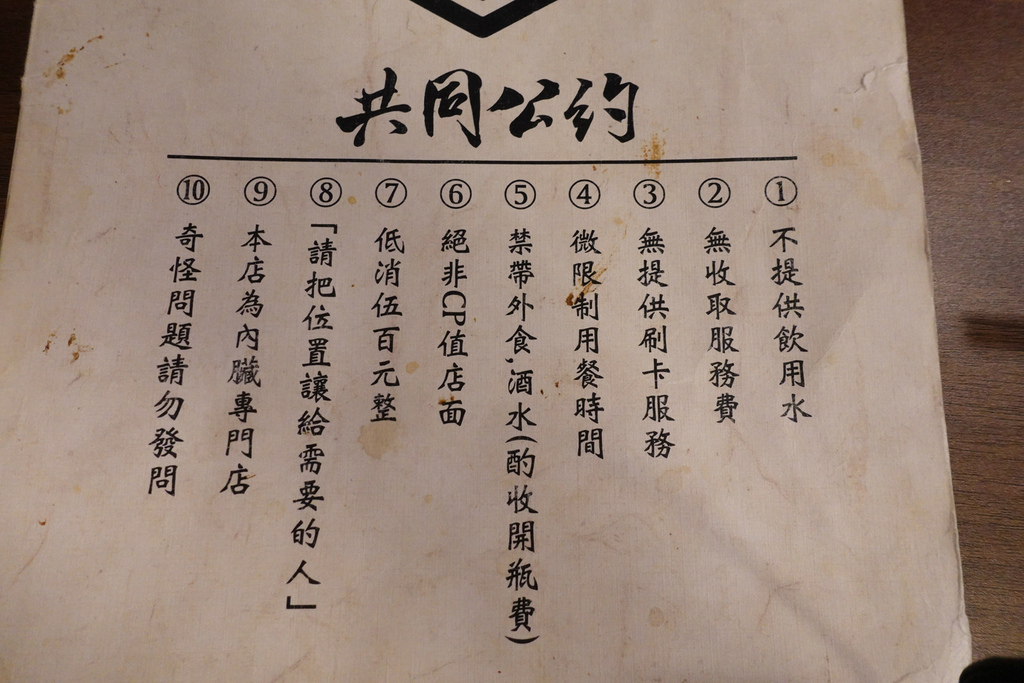 共同公約
① 不提供飲用水
② 無收取服務費
③ 無提供刷卡服務
④ 微限制用餐時間
⑤ 禁帶外食,酒水(酌收開瓶費)
⑥ 絕非CP值店面
⑦ 低消伍百元整
⑧ 「請把位置讓給需要的人」
⑨ 本店為內臟專門店
⑩ 奇怪問題請勿發問